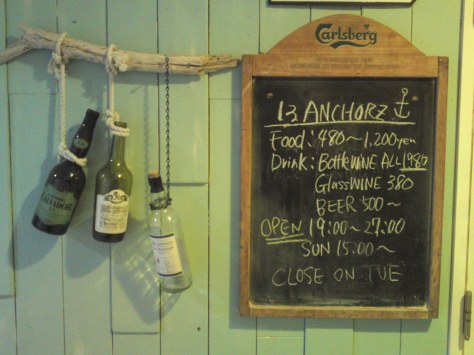 Carlsberg
13 ANCHORZ
Food: 480~1,200yen
Drink: BottleWINE ALL1980
GlassWINE 380
BEER 500~
OPEN 19:00~27:00
SUN 15:00~
CLOSE ON TUE